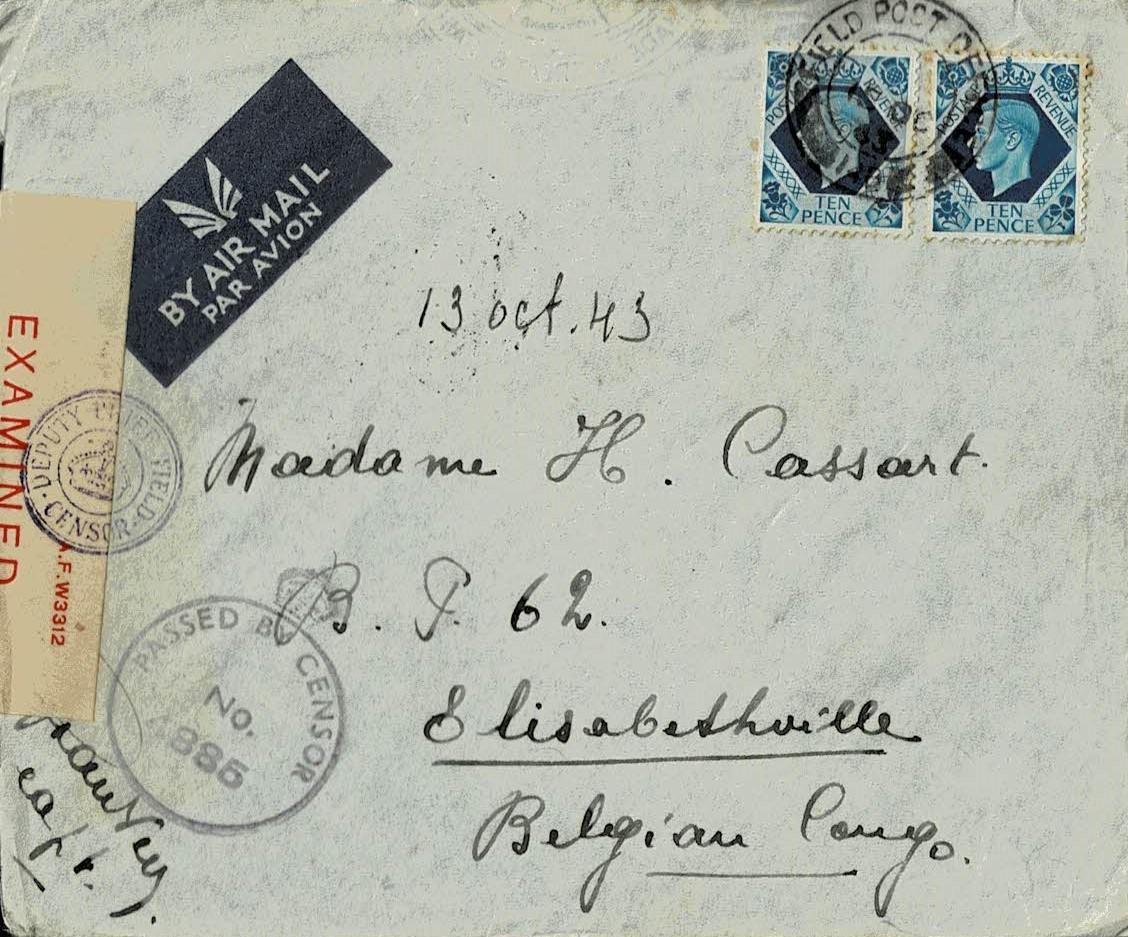 FIELD POST OFFICE
POSTAGE REVENUE
TEN
PENCE
POSTAGE REVENUE
TEN
PENCE
BY AIR MAIL
PAR AVION
13 oct. 43
EXAMINED
A.F.W3312
DEPUTY CHIEF FIELD CENSOR
Madame H. Cassart.
B. P. 62.
PASSED BY CENSOR
NO.
Elisabethville
Belgian Congo.
capt.